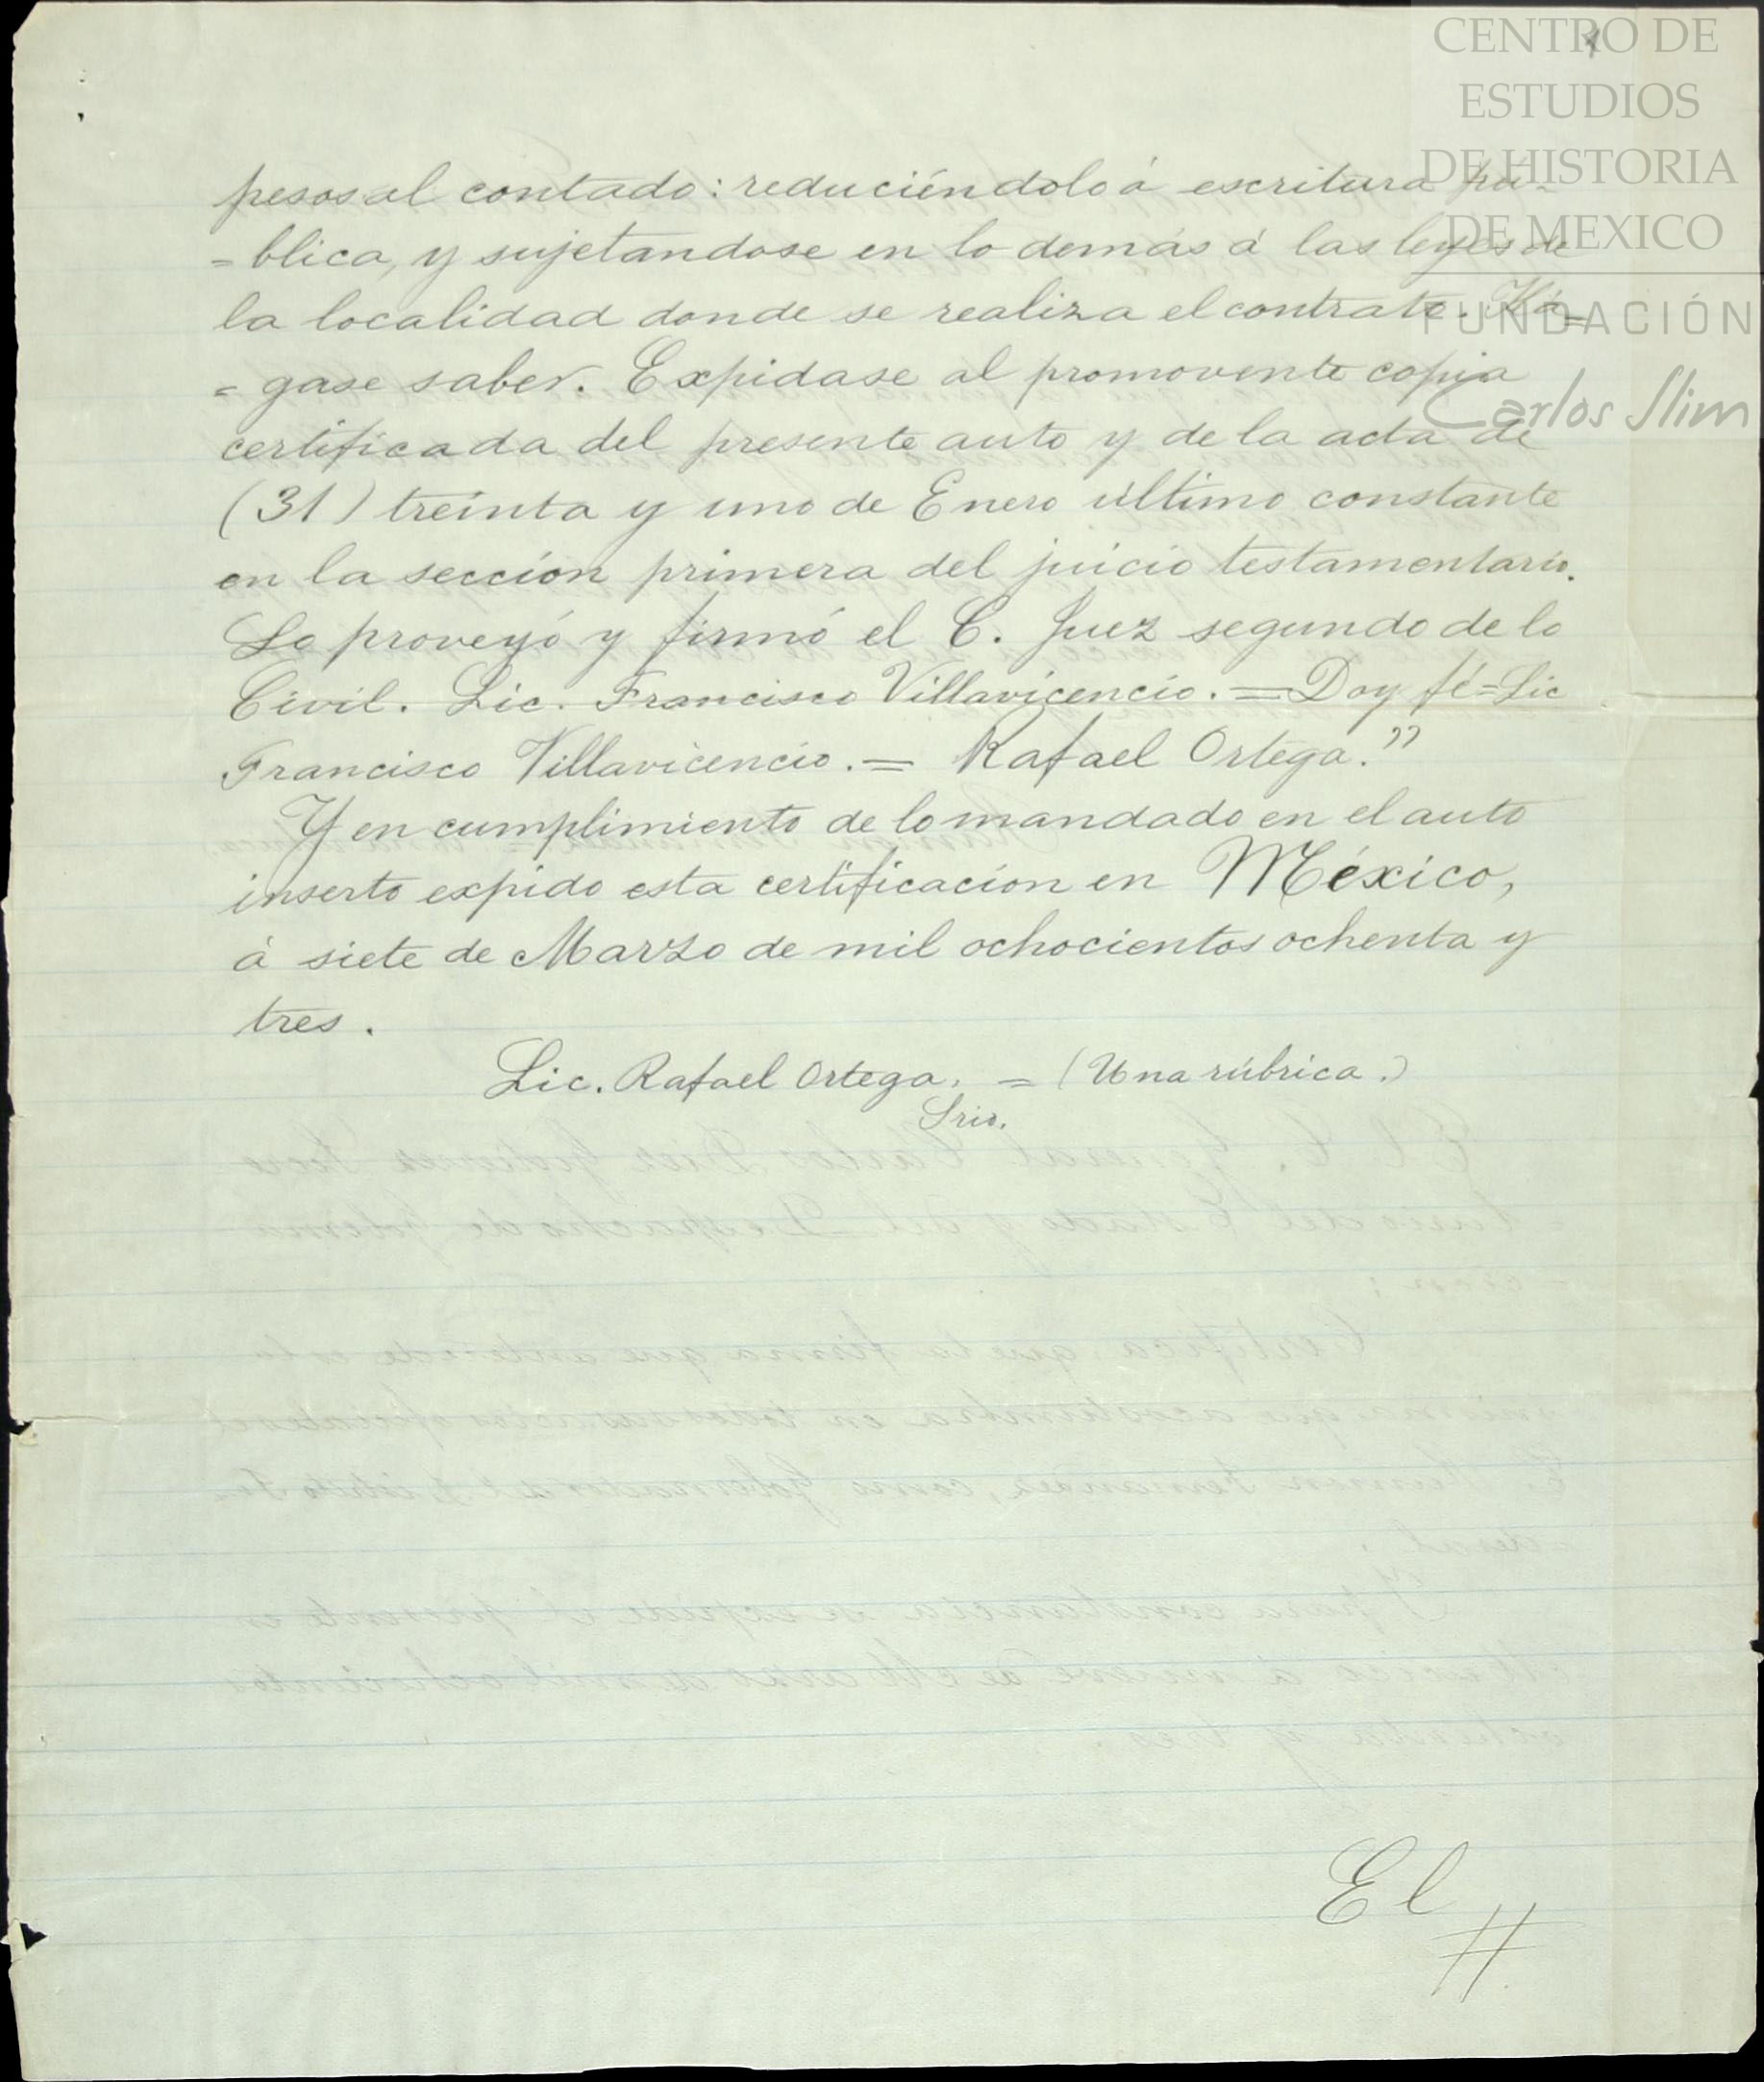 CENTRO DE
ESTUDIOS
DE HISTORIA
DE MEXICO
FUNDACIÓN
Carlos Slim
pesos al contado: reduciéndolo á escritura pú-
=blica, y sujetandose en lo demás á las leyes de
la localidad donde se realiza el contrato. Há=
=gase saber. Expidase al promovente copia
certificada del presente auto y de la acta de
(31) treinta y uno de Enero último constante
en la sección primera del juicio testamentario.
Lo proveyó y firmó el C. Juez segundo de lo
Civil. Lic. Francisco Villavicencio. = Doy fé = Lic
Francisco Villavicencio. = Rafael Ortega."
Y en cumplimiento de lo mandado en el auto
inserto expido esta certificación en México,
á siete de Marzo de mil ochocientos ochenta y
tres.
Lic. Rafael Ortega. = (Una rúbrica.)
Srio.
El